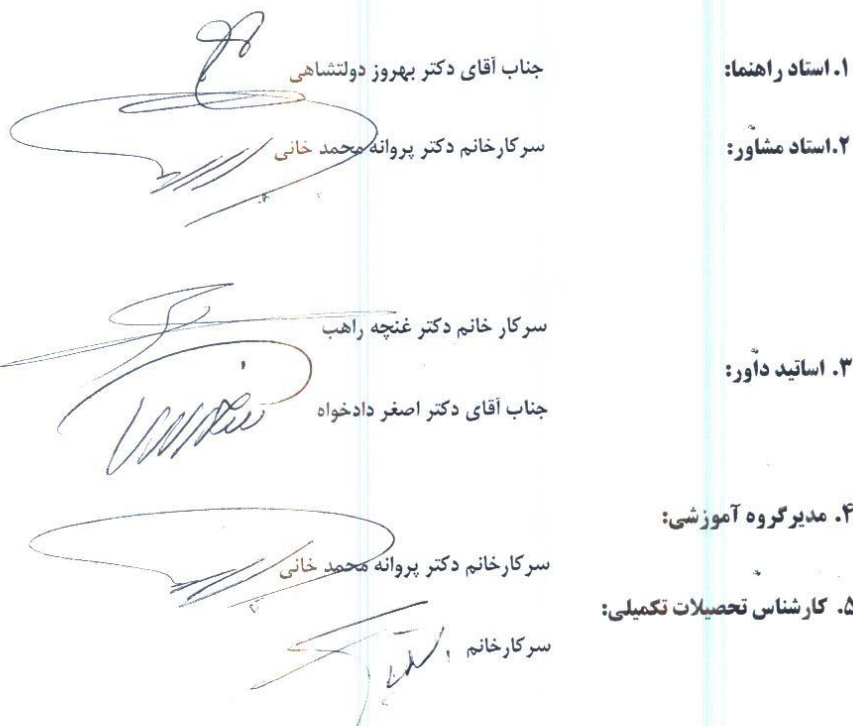 ۱. استاد راهنما: جناب آقای دکتر بهروز دولتشاهی
۲.استاد مشاور: سرکارخانم دکتر پروانه محمد خانی
سرکار خانم دکتر غنچه راهب
۳. اساتید داور:
جناب آقای دکتر اصغر دادخواه
۴. مدیرگروه آموزشی:
سرکارخانم دکتر پروانه محمد خانی
۵. کارشناس تحصیلات تکمیلی:
سرکارخانم